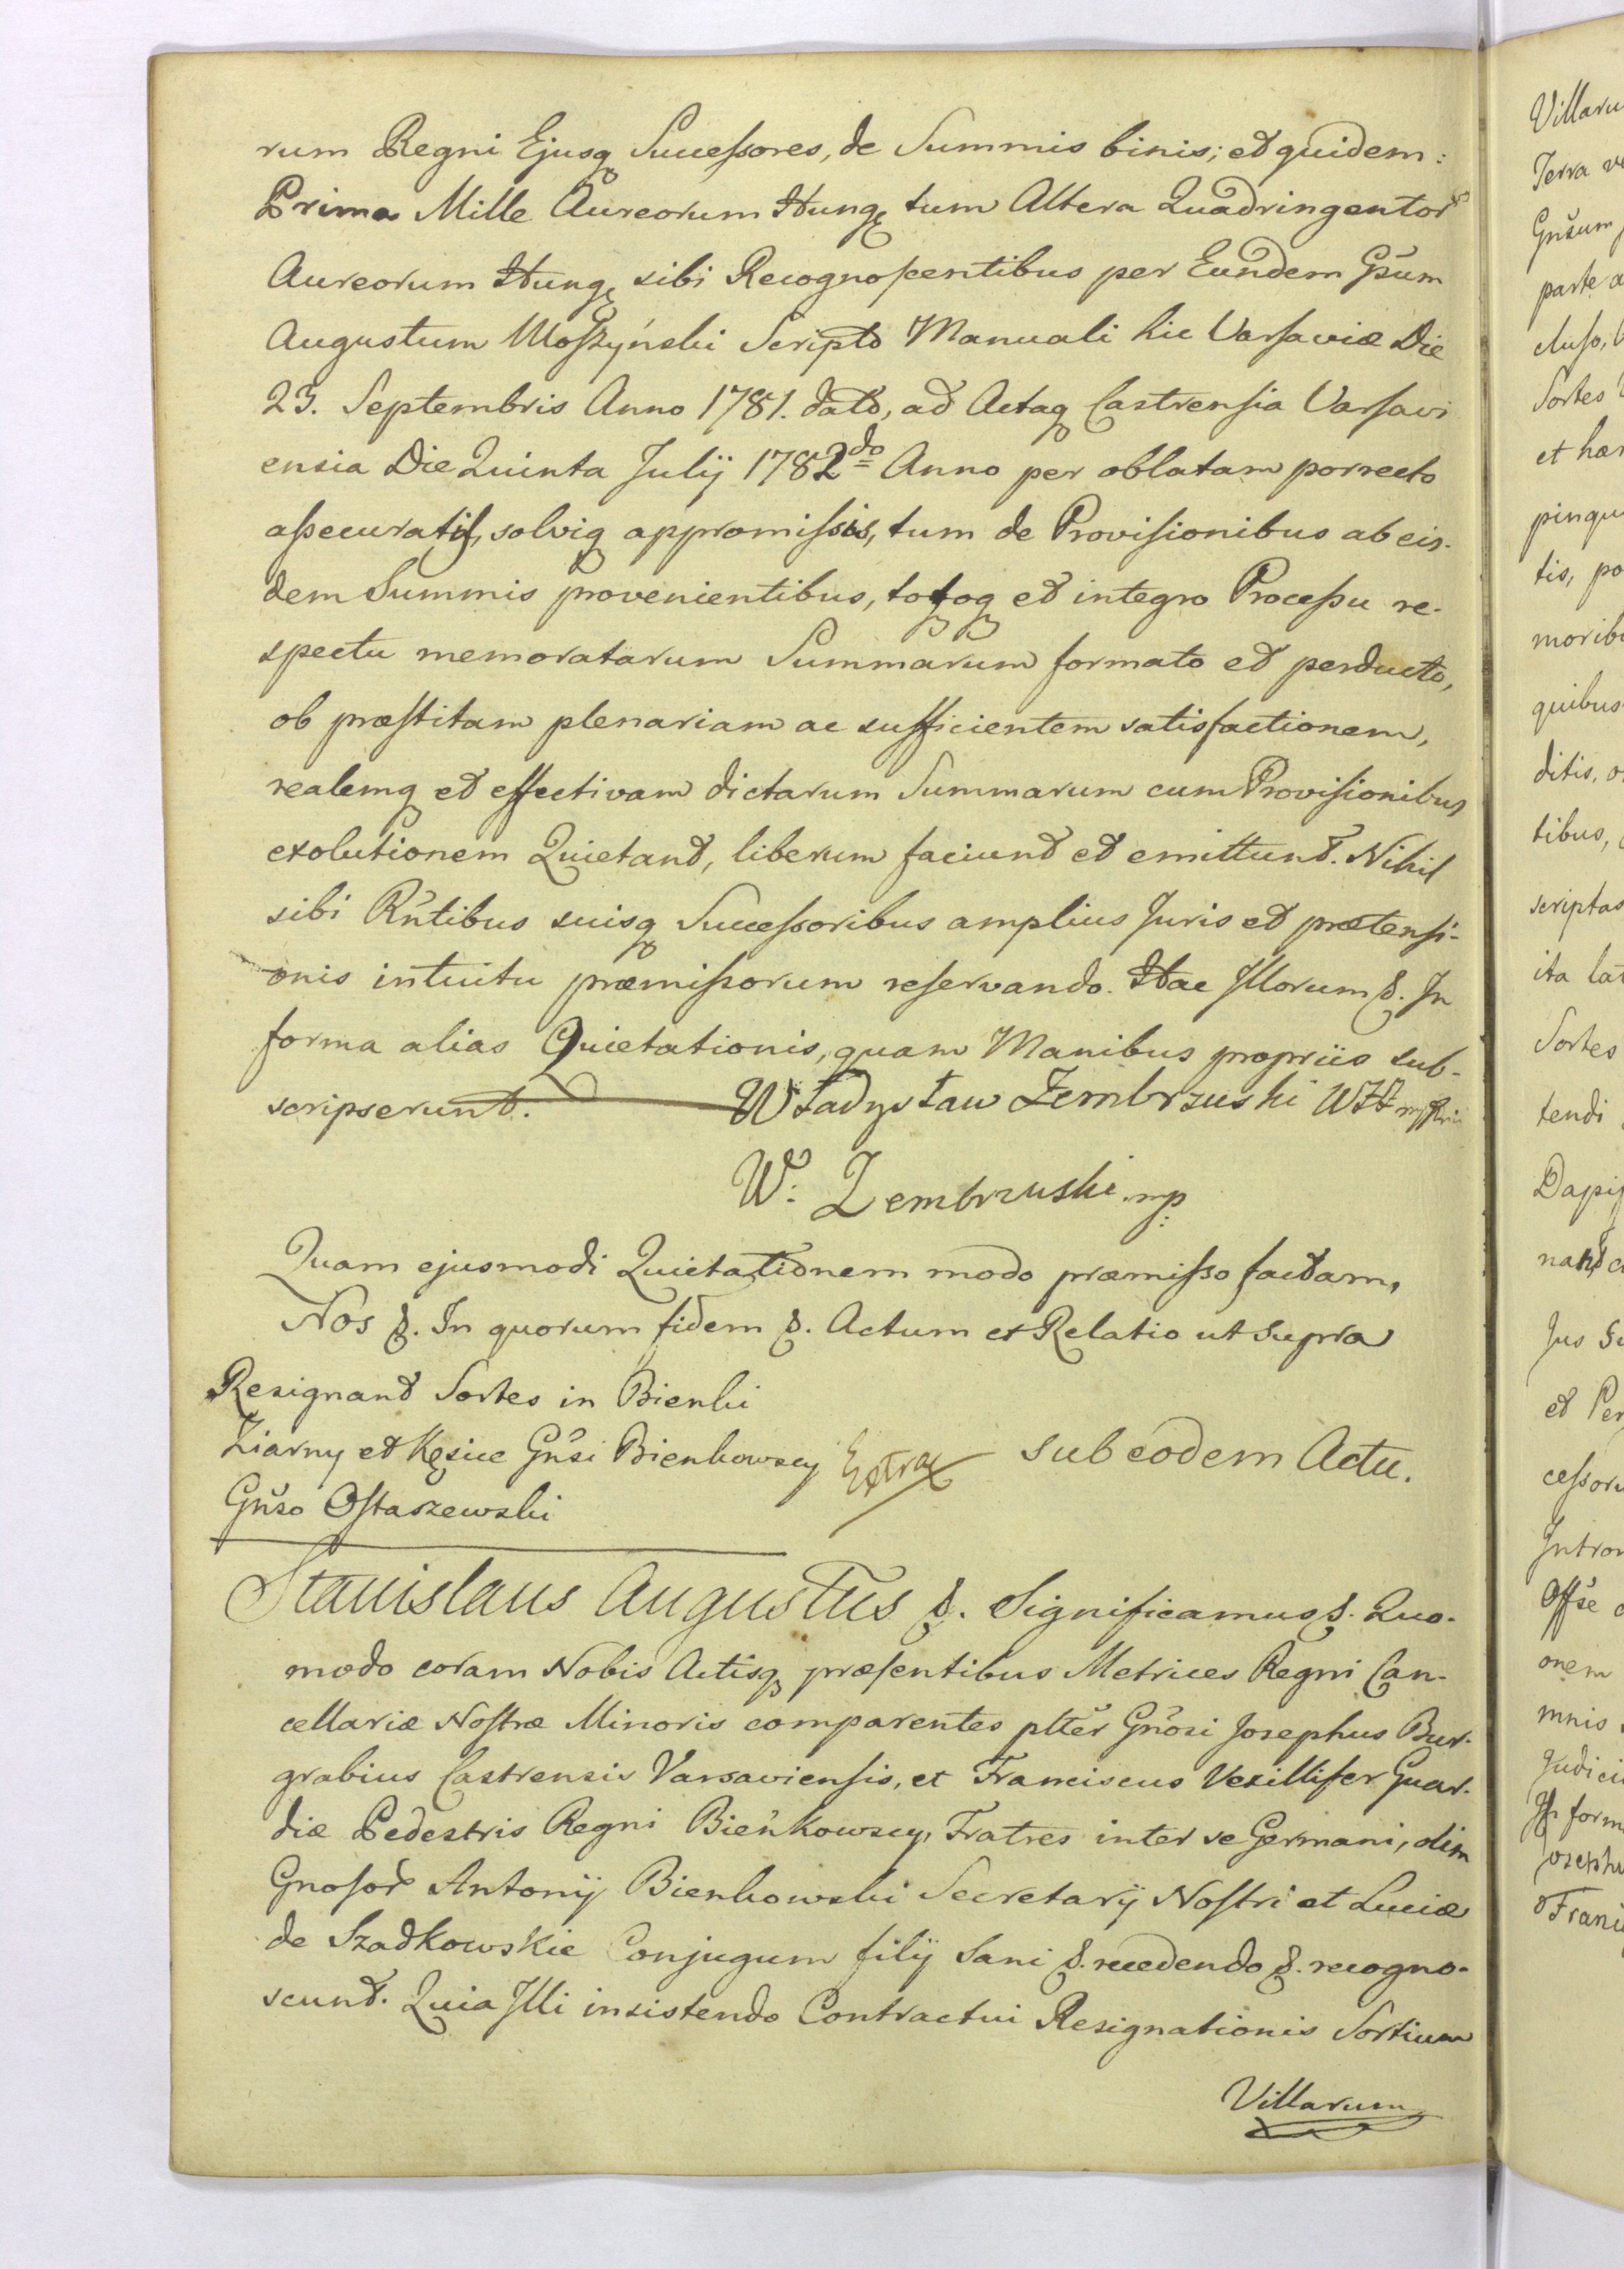 rum Regni Ejusq Successores, de Summis binis; et quidem:
Prima Mille Aureorum Hung tum Altera Quadringentor
Aureorum Hung sibi Recognoscentibus per Eundem Gsum
Augustum Moszyński Scripto Manuali hic Varsaviæ Die
23. Septembris Anno 1781. dato, ad Actaq Castrensia Varsavi
ensia Die Quinta Julij 1782do Anno per oblatam porrecto
assecuratis, solviq appromissis, tum de Provisionibus ab eis-
dem Summis provenientibus, totoq et integro Processu re-
spectu memoratarum Summarum formato et perducto,
ob præstitam plenariam ac sufficientem satisfactionem,
realemq et effectivam dictarum Summarum cum Provisionibus
exolutionem Quietant, liberum faciunt et emittunt. Nihil
sibi Rñtibus suisq Successoribus amplius Juris et prætensi-
onis intuitu præmissorum reservando. Hac Illorum &. In
forma alias Quietationis, quam Manibus propriis sub-
scripserunt. Władysław Zembrzuski
W: Zembrzuski mp:
Quam ejusmodi Quietationem modo præmisso factam,
Nos &. In quorum fidem &. Actum et Relatio ut supra
Resignant Sortes in Bienki
Ziarny et Kęsice Gñsi Bienkowscy Extrax sub eodem Actu.
Gñso Ostaszewski
Stanislaus Augustus &. Significamus &. Quo-
modo coram Nobis Actisq præsentibus Metrices Regni Can-
cellariæ Nostræ Minoris comparentes pltĕr Gñosi Josephus Bur-
grabius Castrensis Varsaviensis, et Franciscus Vexillifer Guar-
diæ Pedestris Regni Bieńkowscy, Fratres inter se Germani, olim
Gnosor Antonij Bienkowski Secretarij Nostri et Luciæ
de Szadkowskie Conjugum filij Sani &. recedendo &. recogno-
scunt. Quia Illi insistendo Contractui Resignationis Sortium
Villarum